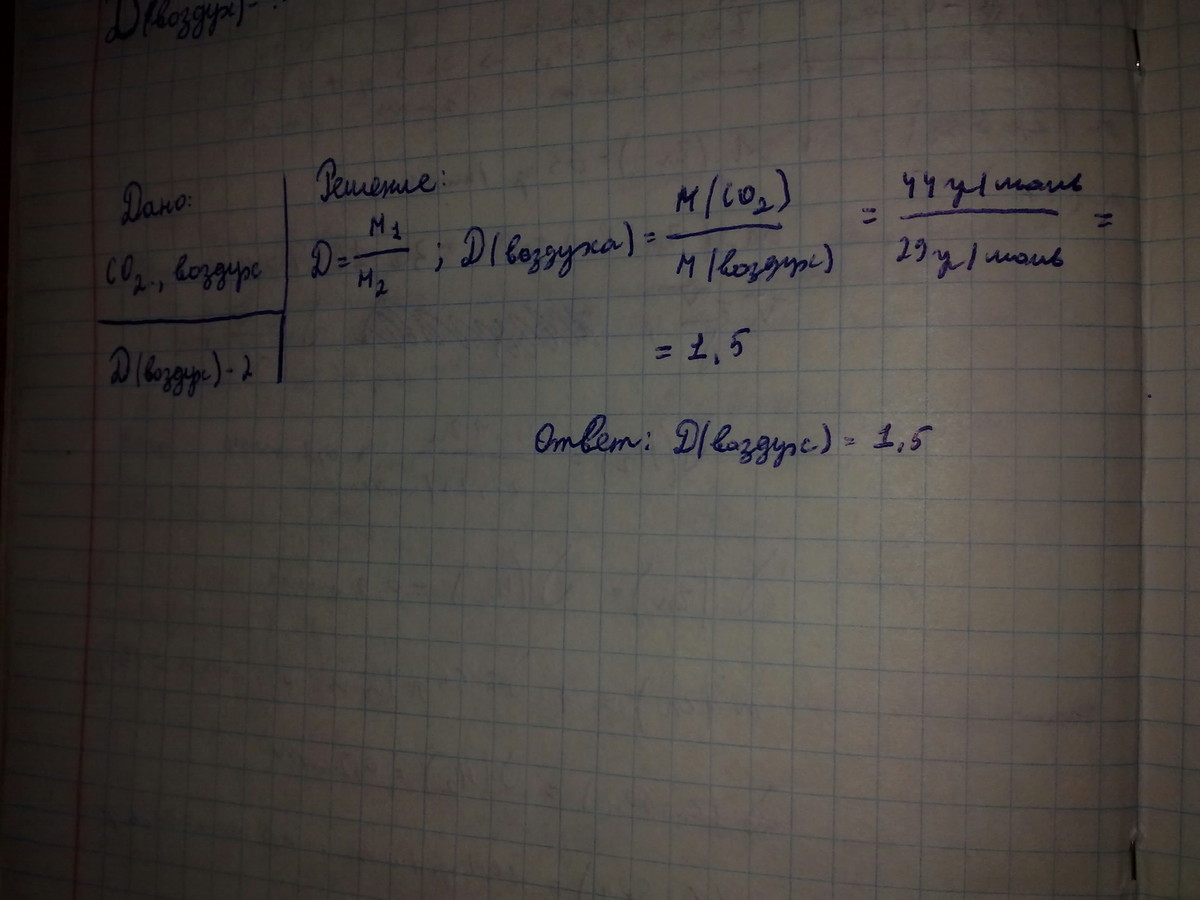 D(воздух)-?
Дано:
CO₂, воздух
D(воздух)-?
Решение:
D = M₁/M₂ ; D(воздуха) = M(CO₂)/M(воздух) = 44 г/моль / 29 г/моль =
= 1,5
Ответ: D(воздух) = 1,5